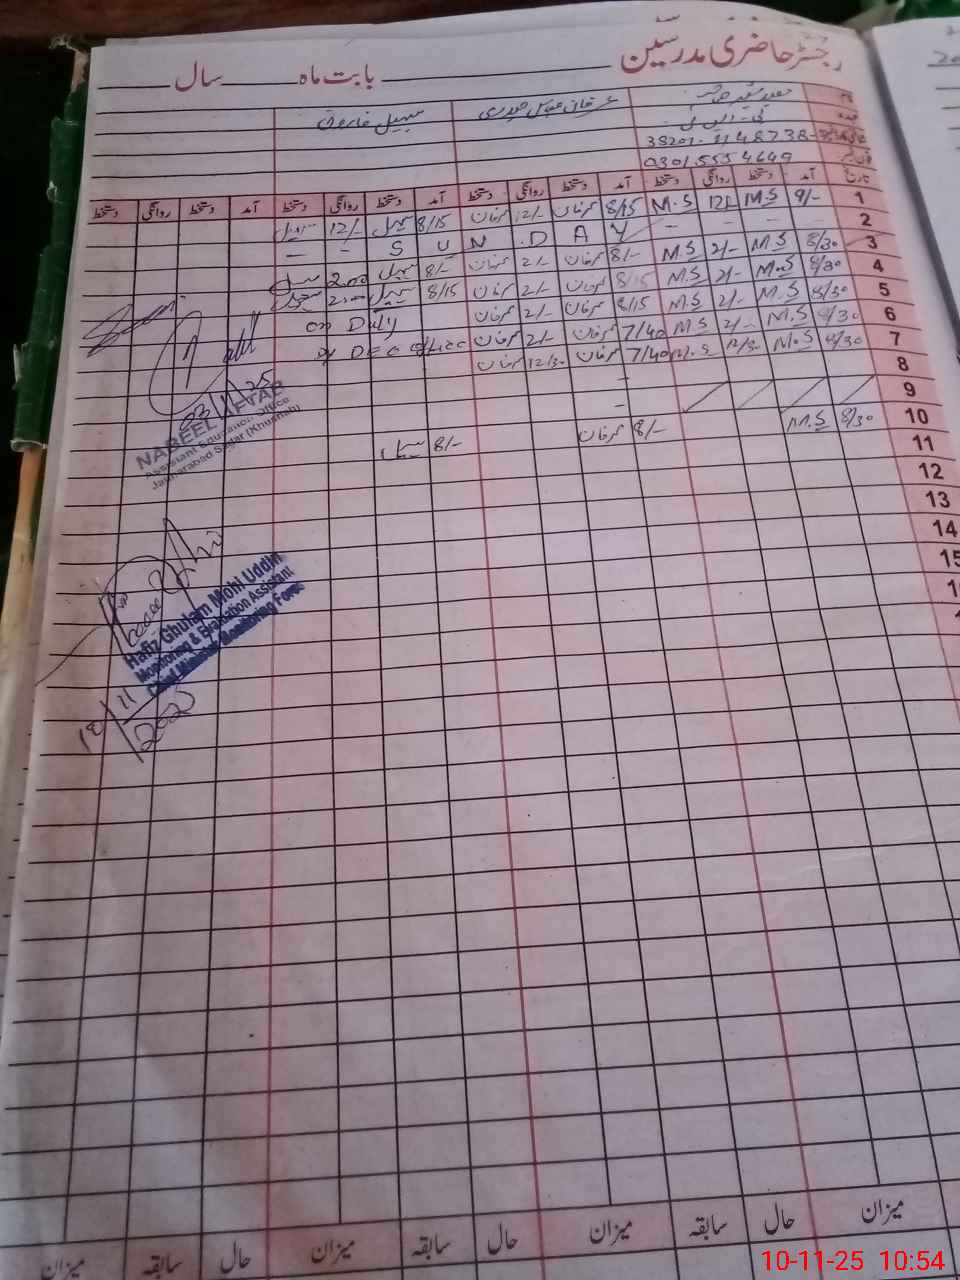 رجسٹر حاضری مدرسین
بابت ماہ سال
عرفان عباس حیدری سہیل فاروق
38201-1148738-
0301 5554649
تاریخ آمد دستخط روانگی دستخط آمد دستخط روانگی دستخط آمد دستخط روانگی دستخط آمد دستخط روانگی دستخط
1 9/- M.S 12/- M.S 8/15 عرفان 12/- عرفان 8/15 سہیل 12/-
2 - - - - S U N D A Y - -
3 8/30 M.S 2/- M.S 8/- عرفان 2/- عرفان 8/- سہیل 2:00
4 8/30 M.S 2/- M.S 8/15 عرفان 2/- عرفان 8/15 سہیل 2:00
5 8/30 M.S 2/- M.S 8/15 عرفان 2/- عرفان on Duty
6 8/30 M.S 2/- M.S 7/40 عرفان 2/- عرفان
7 8/30 M.S 12/30 M.S 7/40 عرفان 12/30 عرفان
8
9
10 8/30 M.S 8/- عرفان 8/- سہیل
11
12
13
14
15
NABEEL AFTAB
Assistant Education Office
Jauharabad Sagar (Khushab)
Hafiz Ghulam Mohi Uddin
Monitoring & Evaluation Assistant
Chief Minister Monitoring Force
10/11/2025
میزان حال سابقہ میزان حال سابقہ میزان حال سابقہ میزان
10-11-25 10:54